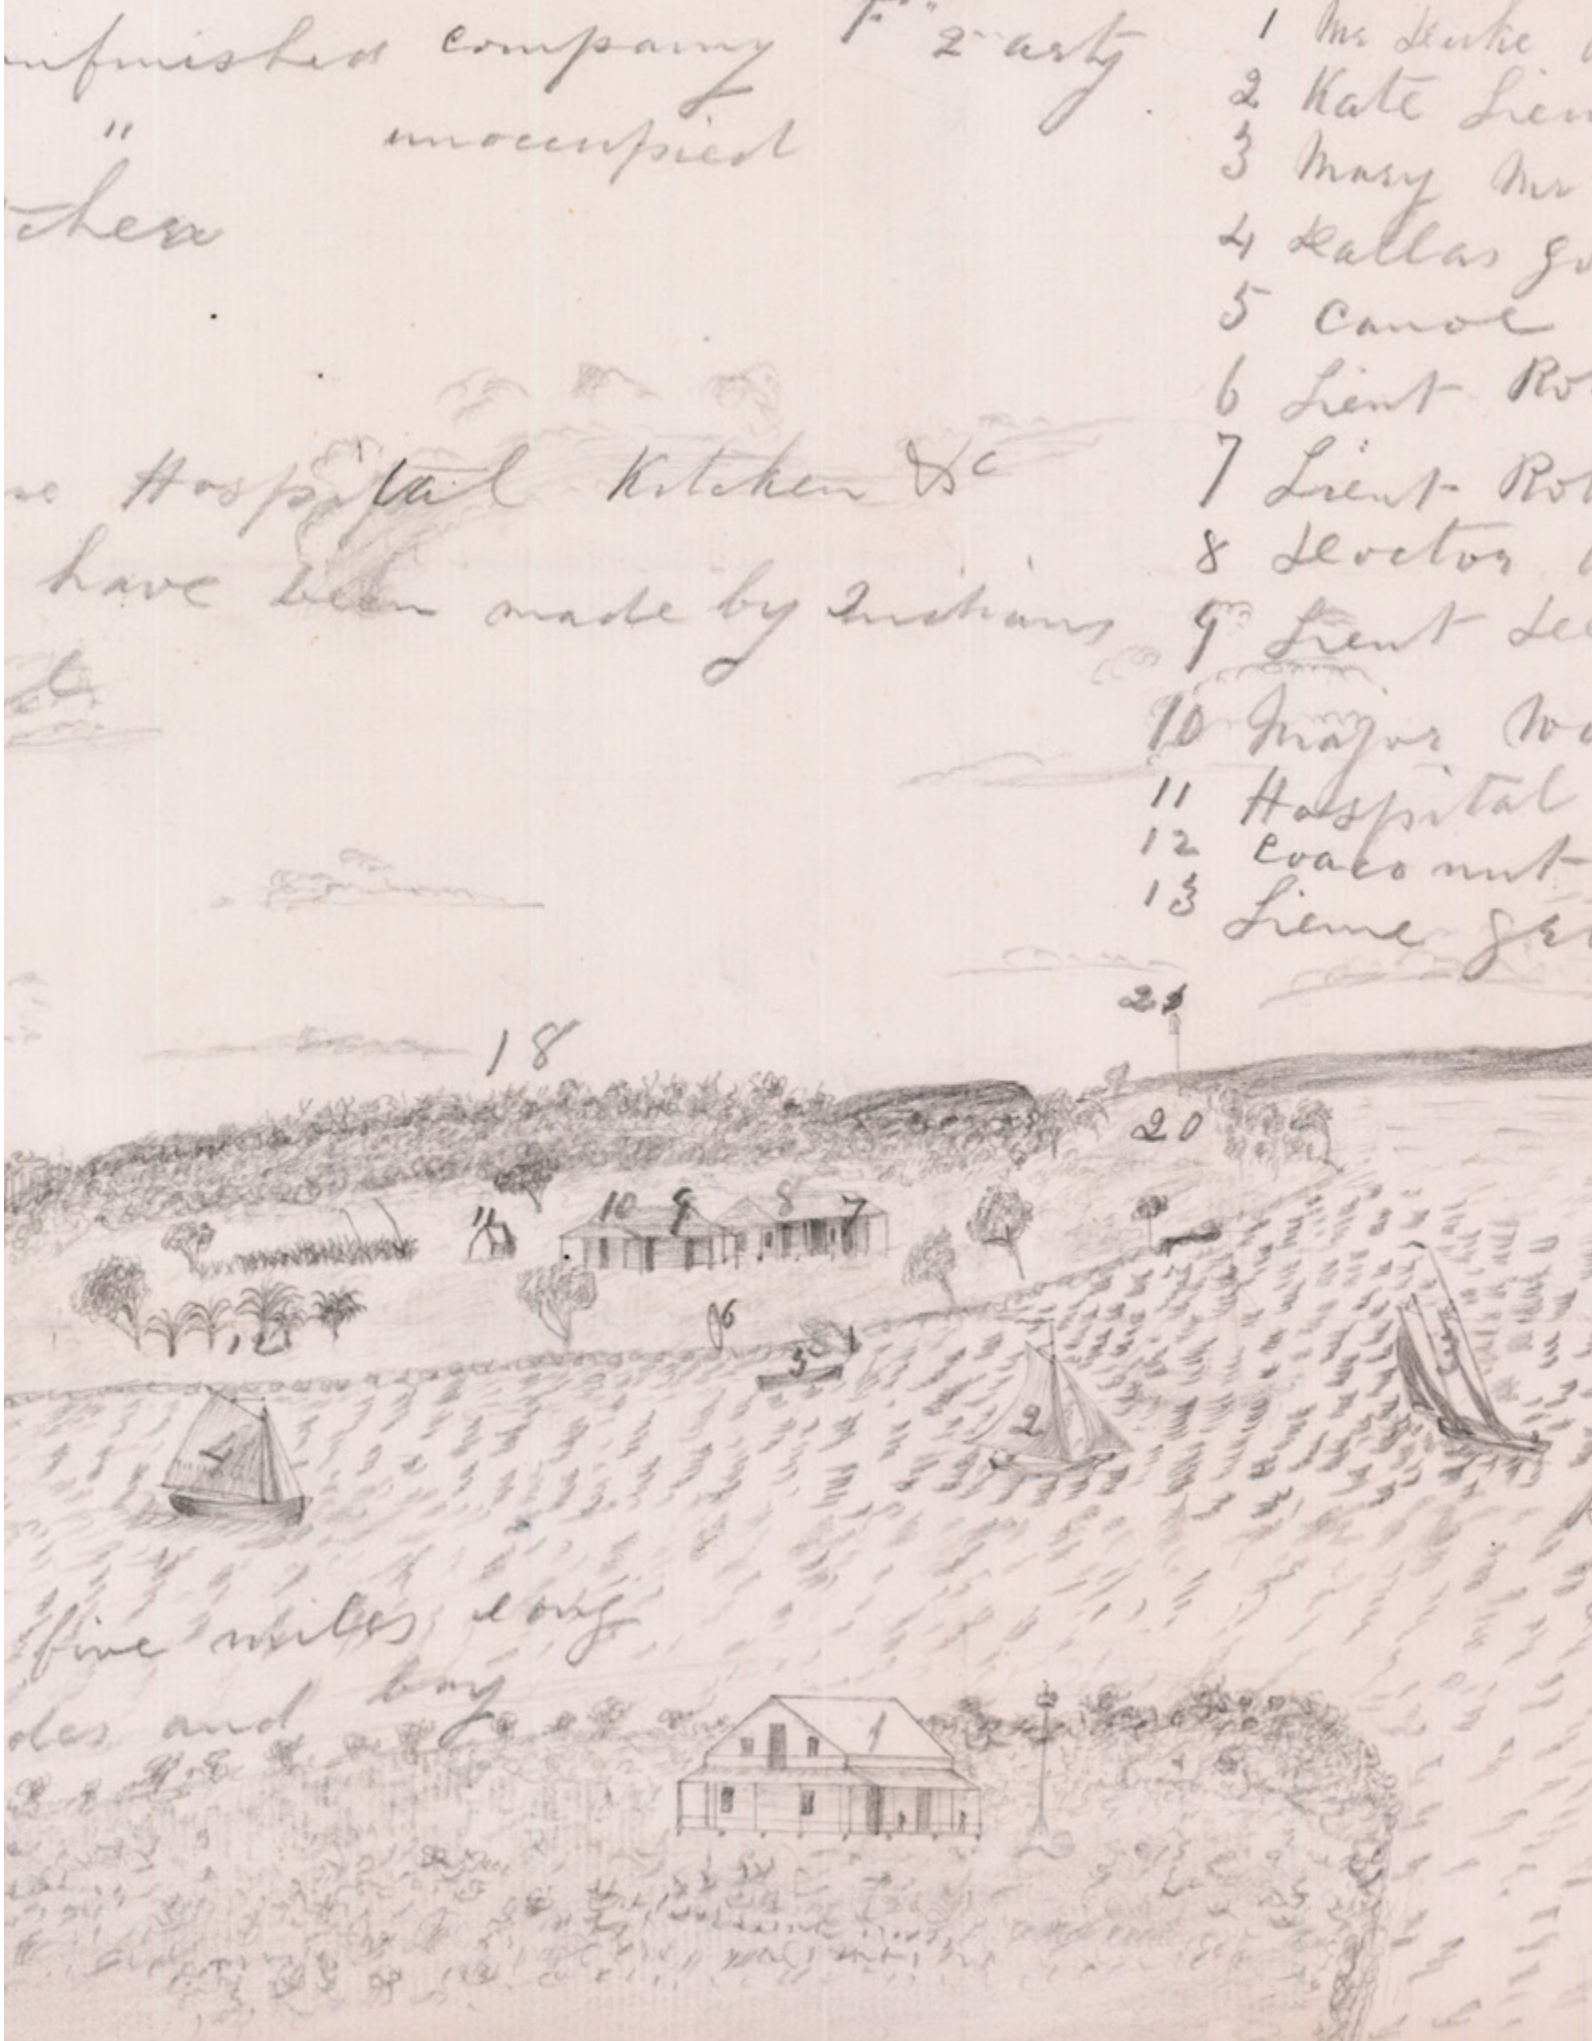 unfinished company F" 2 arty
" unoccupied
Hospital Kitchen &c
have been made by Indians
1 Mr Duke
2 Kate Lieu
3 Mary Mr
4 Dallas
5 Canoe
6 Lieut Ro
7 Lieut Rob
8 Doctor
9 Lieut De
10 Major Wo
11 Hospital
12 Coaco nut
13 Lieme
18
21
20
11 10 9 8 7
12
6
5
2
five miles long
and bay
1